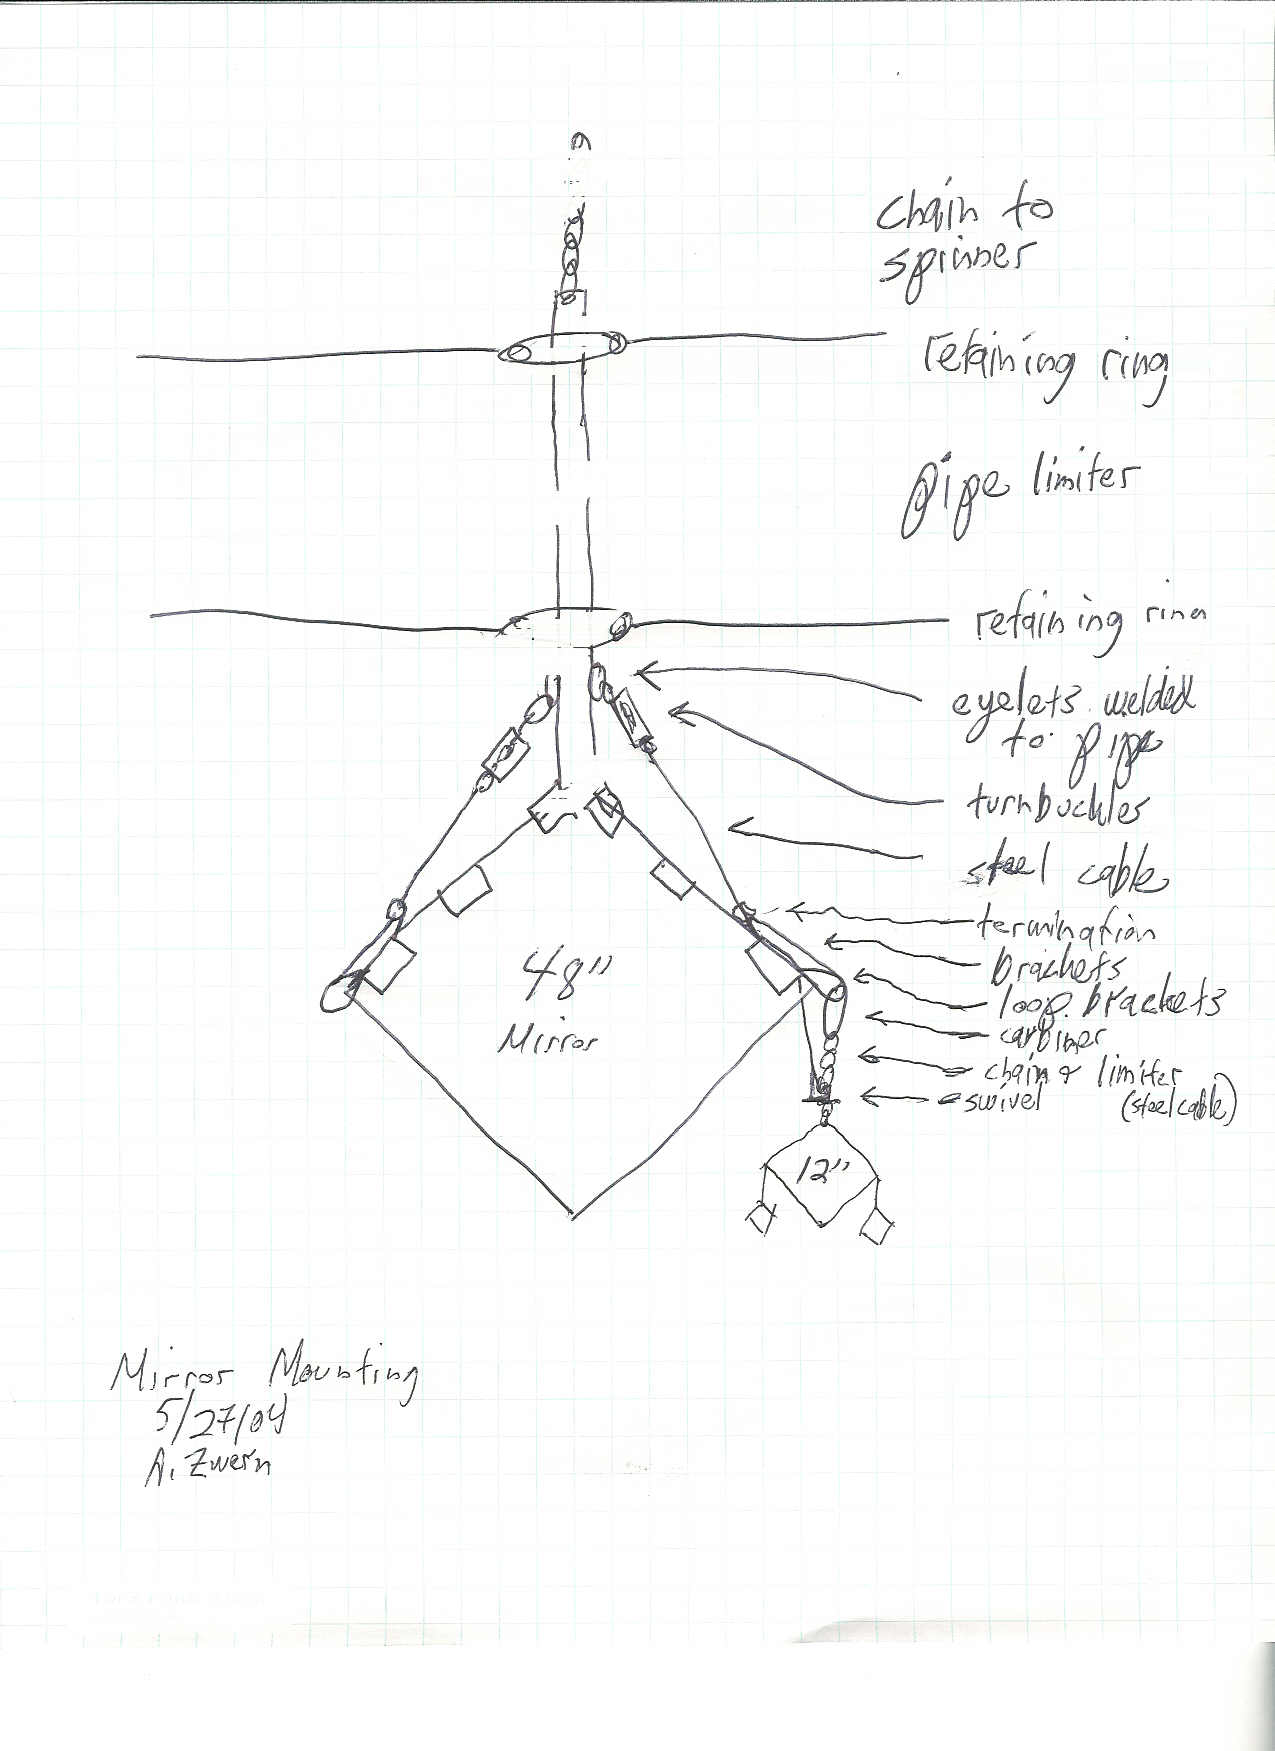 chain to
spinner
retaining ring
pipe limiter
retaining ring
eyelets welded
to pipe
turnbuckles
steel cable
termination
brackets
loop brackets
carbiner
chain & limiter
swivel (steel cable)
48"
Mirror
12"
Mirror Mounting
5/27/04
A. Zwern